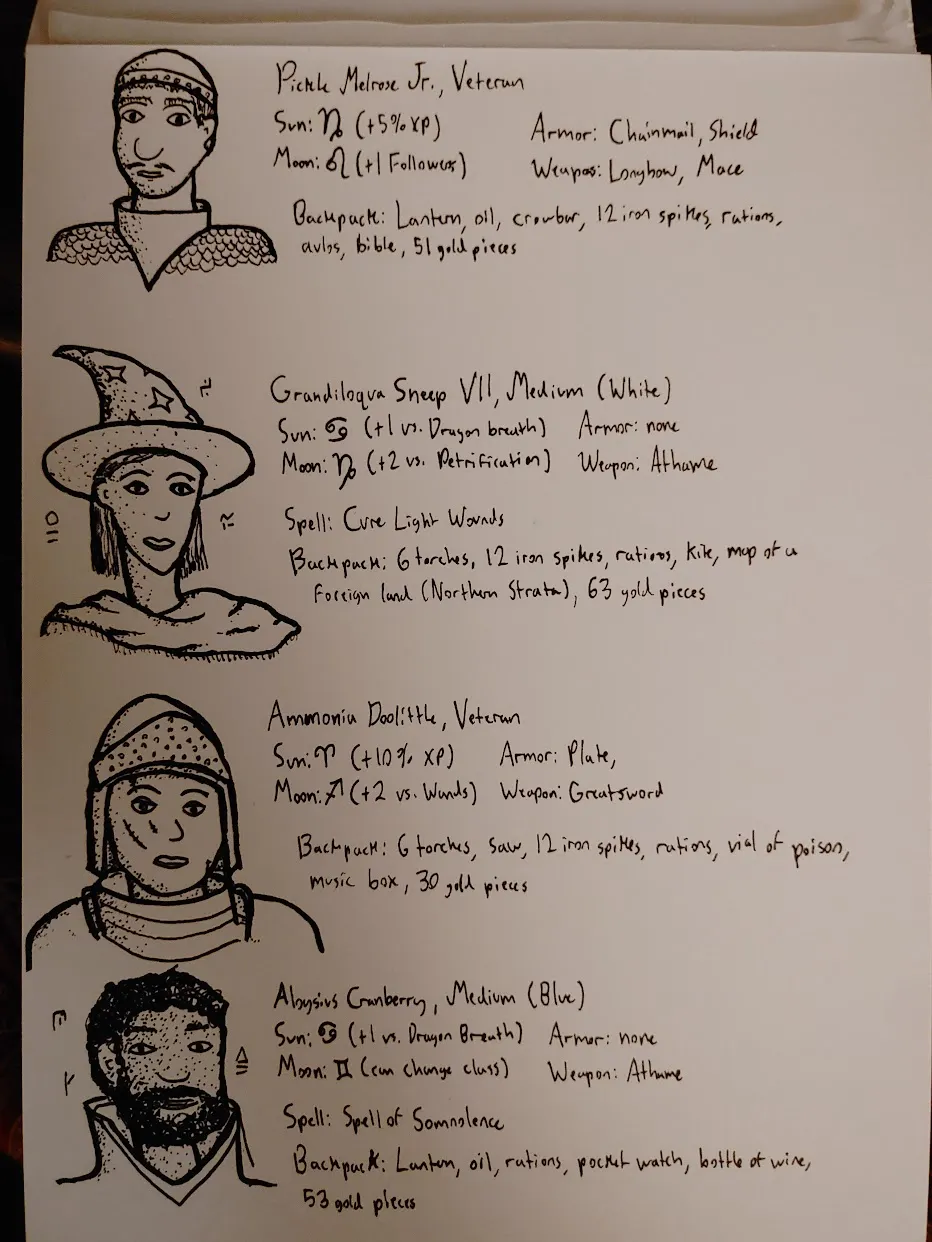 Pickle Melrose Jr., Veteran
Sun: ♑ (+5% XP) Armor: Chainmail, Shield
Moon: ♌ (+1 Followers) Weapons: Longbow, Mace
Backpack: Lantern, oil, crowbar, 12 iron spikes, rations,
aulos, bible, 51 gold pieces
Grandiloqua Sneep VII, Medium (White)
Sun: ♋ (+1 vs. Dragon breath) Armor: none
Moon: ♑ (+2 vs. Petrification) Weapon: Athame
Spell: Cure Light Wounds
Backpack: 6 torches, 12 iron spikes, rations, kite, map of a
Foreign land (Northern Strata), 63 gold pieces
Ammonia Doolittle, Veteran
Sun: ♈ (+10% XP) Armor: Plate,
Moon: ♐ (+2 vs. Wands) Weapon: Greatsword
Backpack: 6 torches, saw, 12 iron spikes, rations, vial of poison,
music box, 30 gold pieces
Aloysius Cranberry, Medium (Blue)
Sun: ♋ (+1 vs. Dragon Breath) Armor: none
Moon: ♊ (can change class) Weapon: Athame
Spell: Spell of Somnolence
Backpack: Lantern, oil, rations, pocket watch, bottle of wine,
53 gold pieces